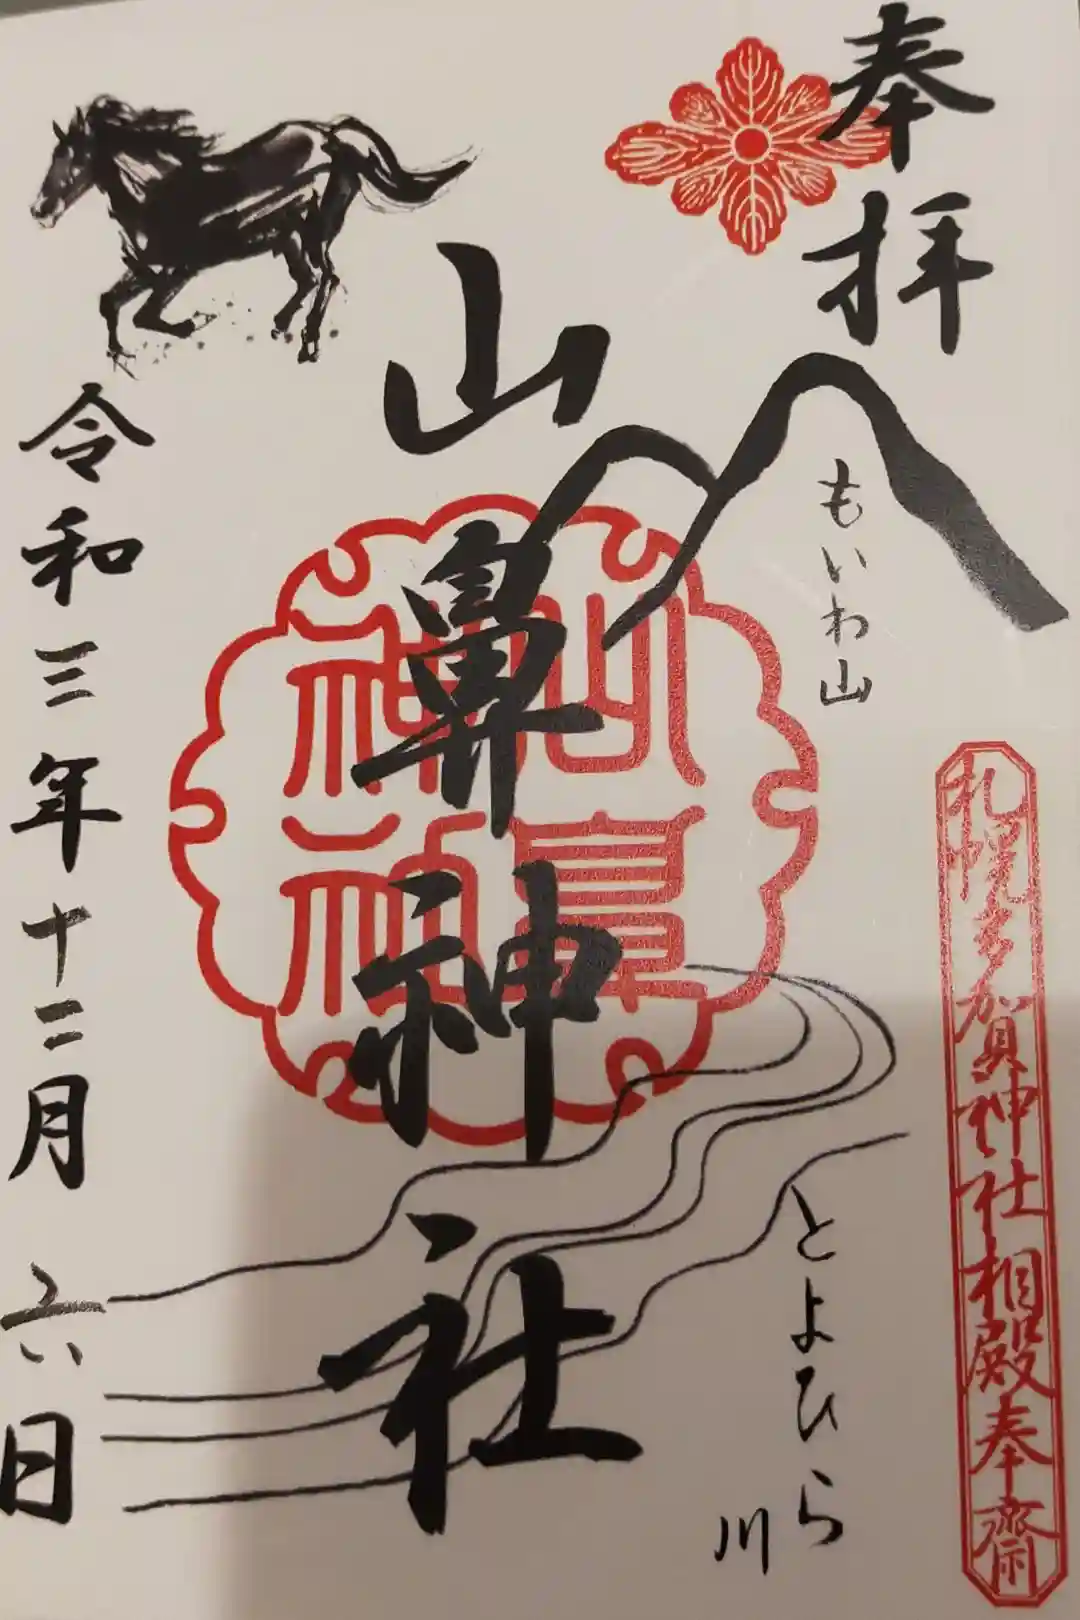 奉拝
もいわ山
とよひら川
札幌多賀神社相殿奉齋
山鼻神社
山鼻神社
令和三年十二月六日